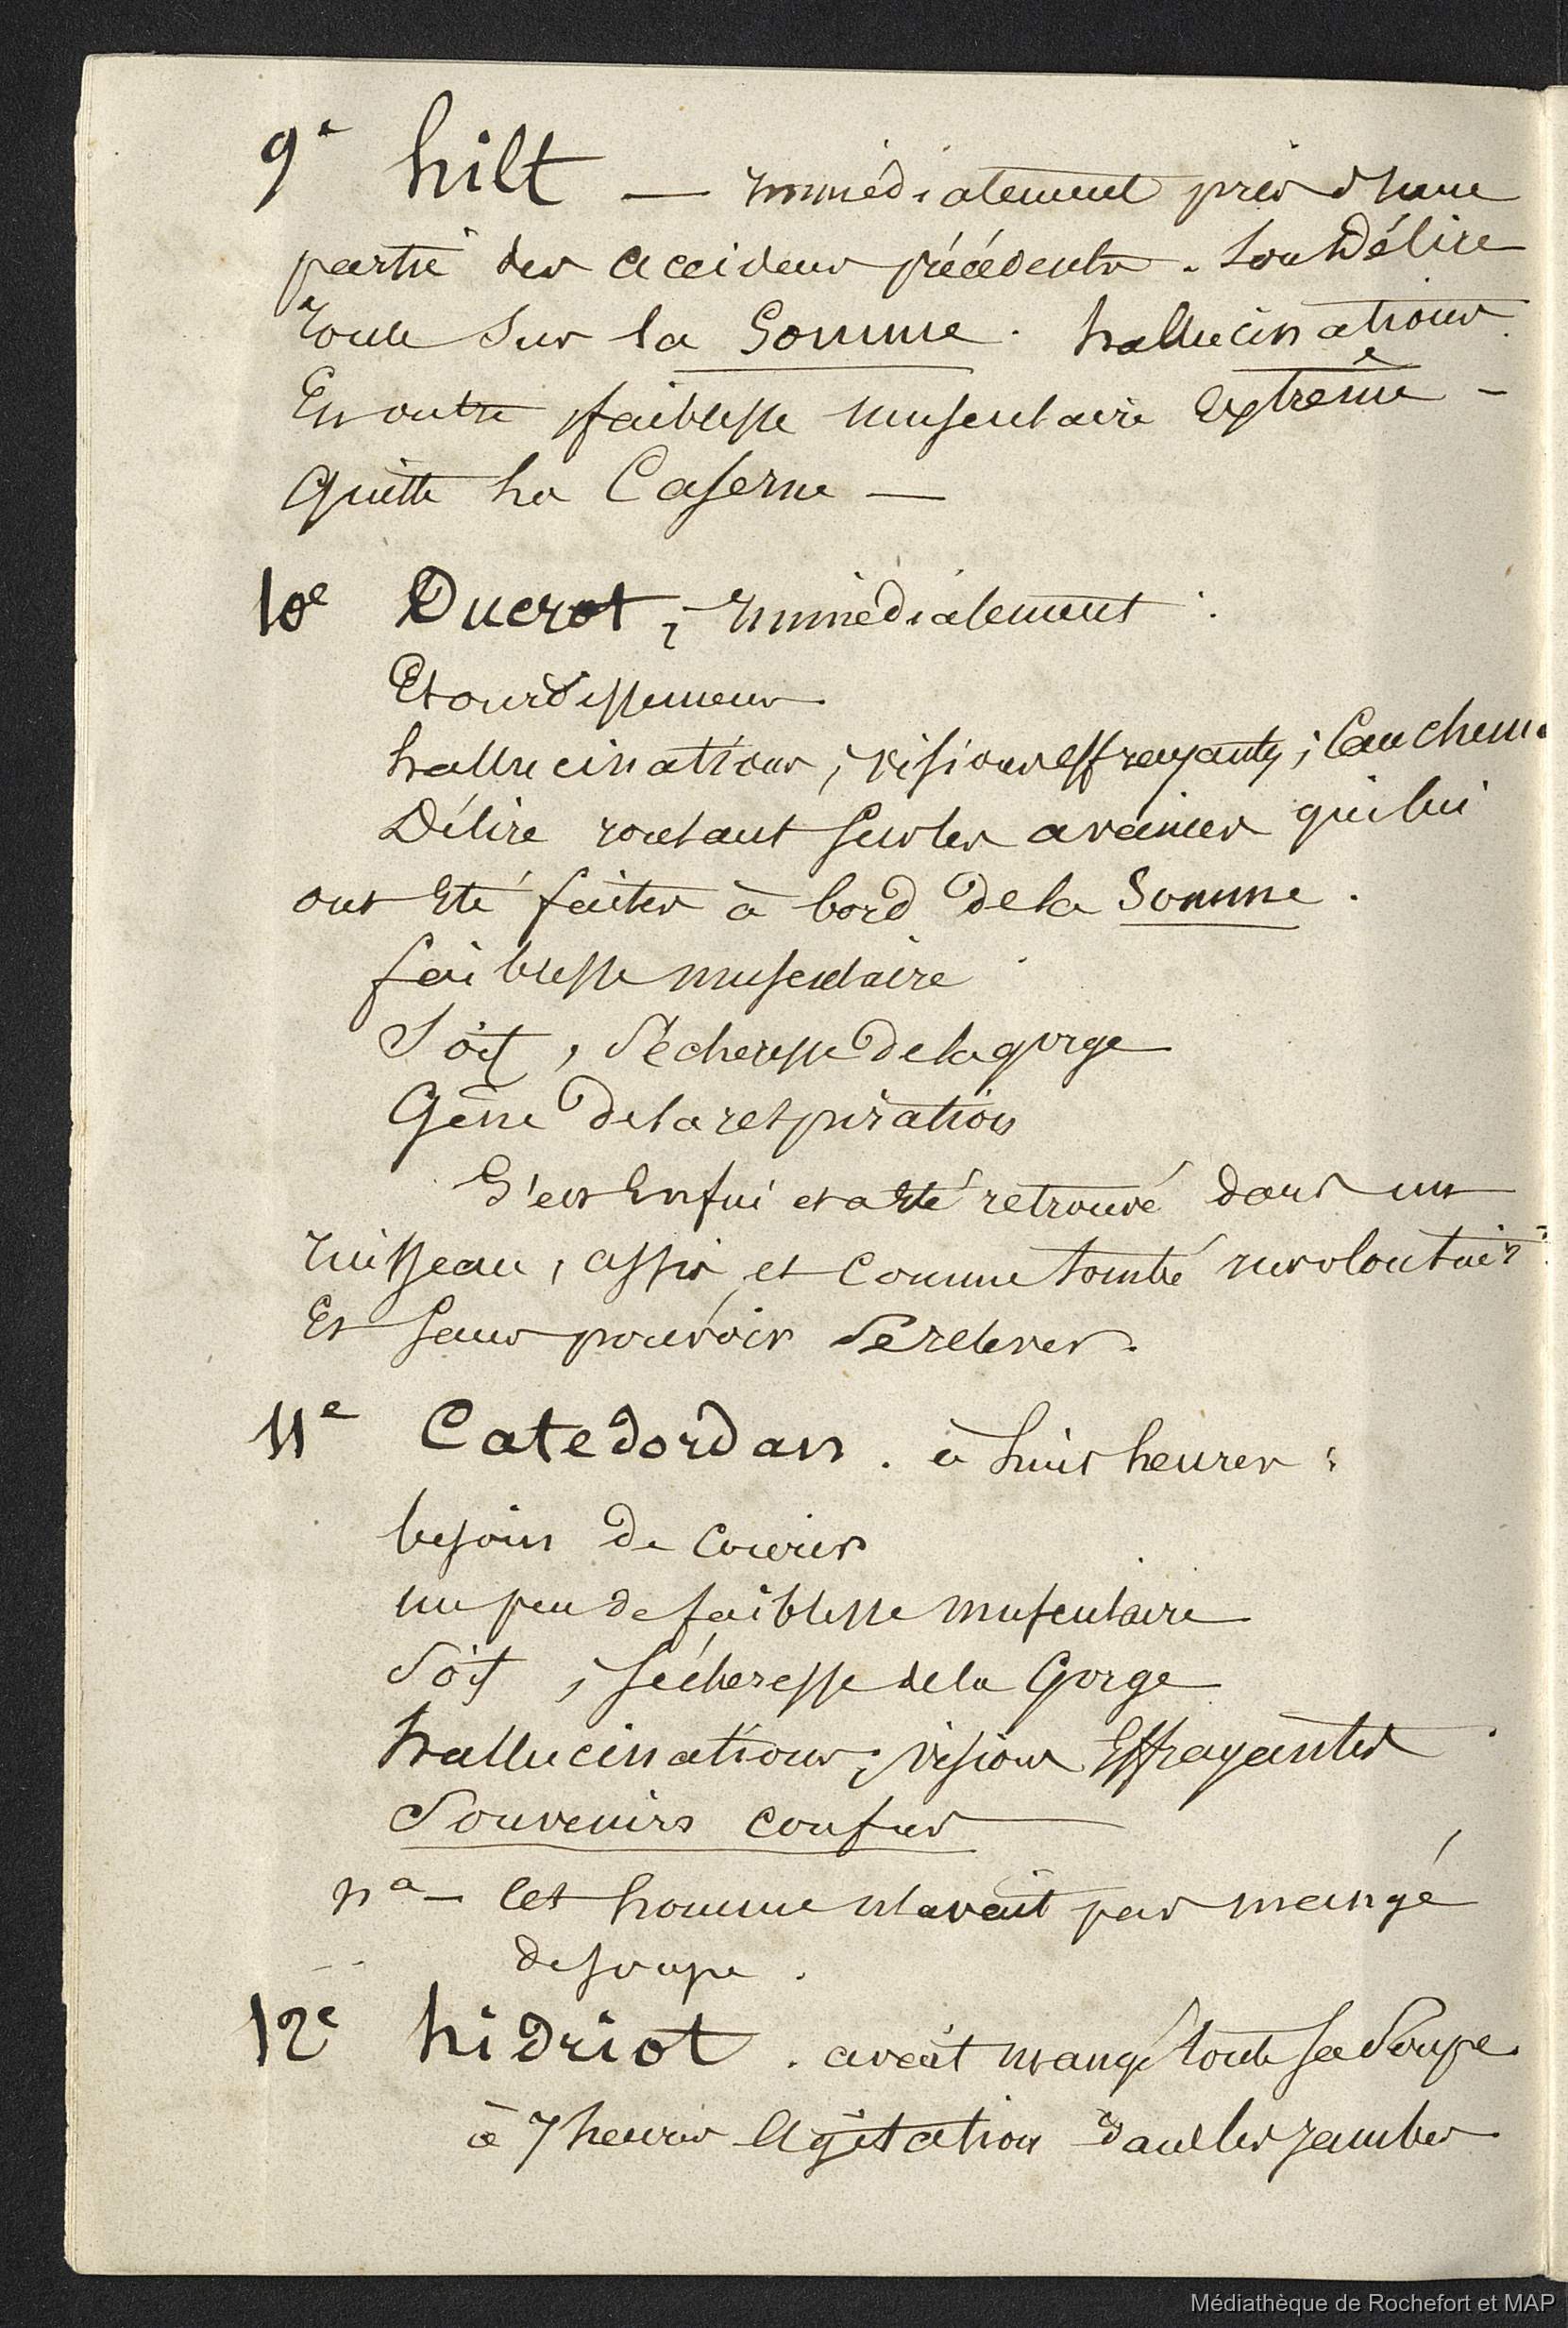 9e hilt — Immédiatement pris d'une
partie des accidens précédents. Son Délire
roule sur la Somme. hallucinations.
En outre faiblesse musculaire Extrême -
Quitte la Caserne —
10e Ducrot ; - Immédiatement :
Etourdissemens
hallucinations ; visions effrayantes ; Cauchem.
Délire roulant sur les avanies qui lui
ont Eté faites à bord de la Somme.
faiblesse musculaire
Soif, Sécheresse de la gorge
Gène de la respiration
S'est Enfui et a Eté retrouvé dans un
ruisseau, assis et comme tombé involontair.
Et sans pouvoir Se relever.
11e Catedordan. à huit heures :
besoin de Courir
un peu de faiblesse musculaire
Soif ; sécheresse de la Gorge
hallucinations ; visions Effrayantes.
Souvenirs confus —
na — Cet homme n'avait pas mangé
de soupe.
12e hidriot. avait mangé toute sa Soupe.
à 7 heures Agitation dans les jambes
Médiathèque de Rochefort et MAP